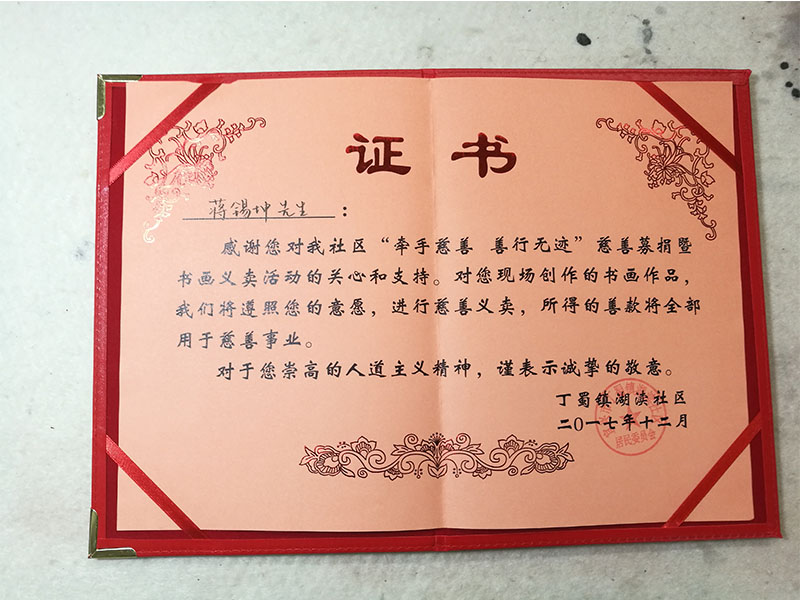 证书
蒋锡坤先生：
感谢您对我社区“牵手慈善 善行无迹”慈善募捐暨
书画义卖活动的关心和支持。对您现场创作的书画作品，
我们将遵照您的意愿，进行慈善义卖，所得的善款将全部
用于慈善事业。
对于您崇高的人道主义精神，谨表示诚挚的敬意。
丁蜀镇湖渎社区
二〇一七年十二月
居民委员会